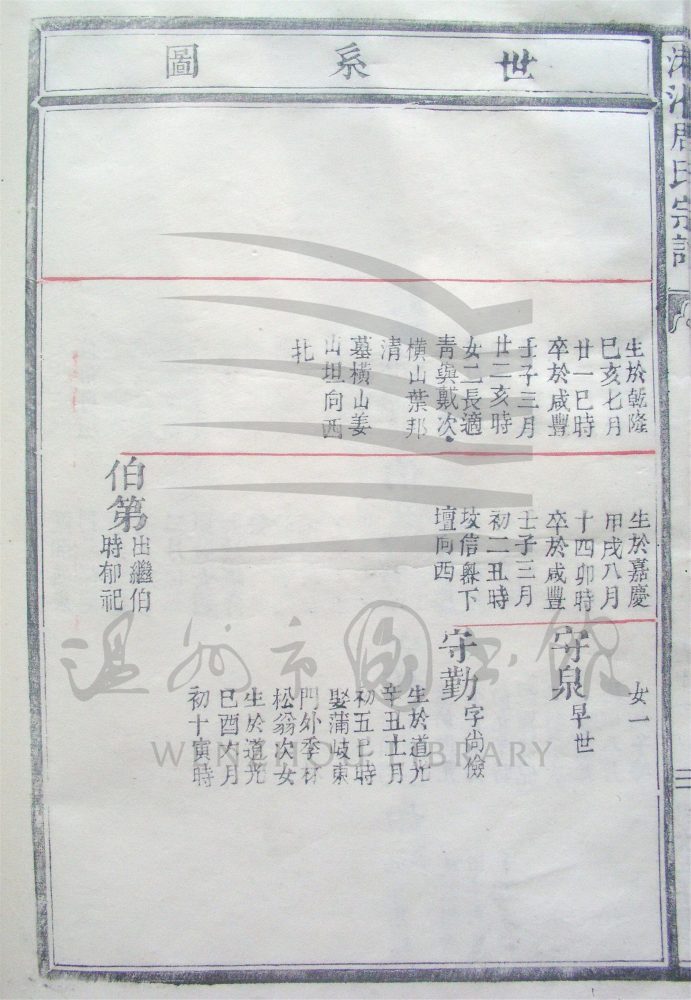 世系圖
周氏宗譜
生於乾隆
巳亥七月
廿一巳時
卒於咸豐
壬子三月
廿二亥時
女二長適
青與戴次
橫山葉邦
清
墓橫山姜
山坦向西
北
生於嘉慶
甲戌八月
十四卯時
卒於咸豐
壬子三月
初二丑時
坟信嶴下
壇向西
伯第
出繼伯
時郁祀
女一
守泉
早世
守勤
字尚儉
生於道光
辛丑十一月
初五巳時
娶蒲岐東
門外季
松翁次女
生於道光
巳酉六月
初十寅時
三
温州市图书馆
WENZHOU LIBRARY